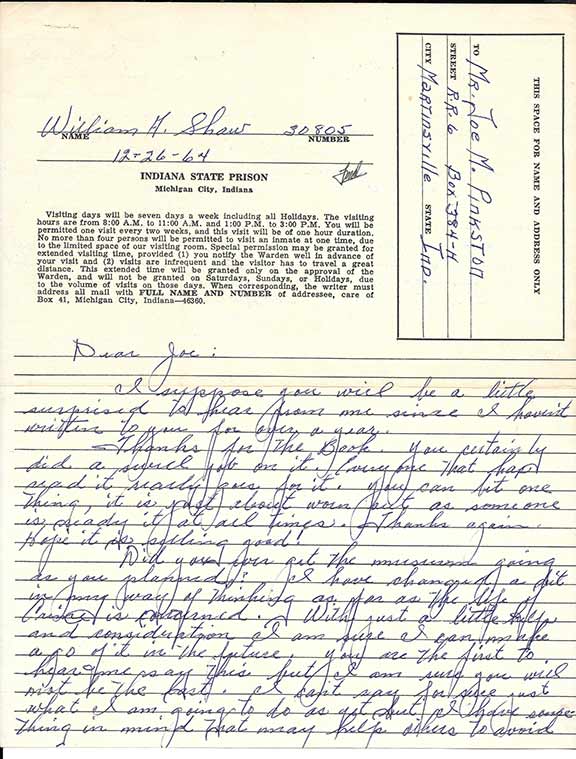 William A. Shaw 30805
NAME NUMBER
12-26-64
INDIANA STATE PRISON
Michigan City, Indiana
Visiting days will be seven days a week including all Holidays. The visiting
hours are from 8:00 A.M. to 11:00 A.M. and 1:00 P.M. to 3:00 P.M. You will be
permitted one visit every two weeks, and this visit will be of one hour duration.
No more than four persons will be permitted to visit an inmate at one time, due
to the limited space of our visiting room. Special permission may be granted for
extended visiting time, provided (1) you notify the Warden well in advance of
your visit and (2) visits are infrequent and the visitor has to travel a great
distance. This extended time will be granted only on the approval of the
Warden, and will not be granted on Saturdays, Sundays, or Holidays, due
to the volume of visits on those days. When corresponding, the writer must
address all mail with FULL NAME AND NUMBER of addressee, care of
Box 41, Michigan City, Indiana—46360.
THIS SPACE FOR NAME AND ADDRESS ONLY
TO Mr. Joe M. Pinkston
STREET R.R. 6 Box-384-H
CITY Martinsville STATE Ind.
Dear Joe:
I suppose you will be a little
surprised to hear from me since I havint
written to you for over a year.
Thanks for the Book. You certainly
did a swell job on it. Everyone that has
read it really goes for it. You can bit one
thing, it is just about worn out as someone
is ready it at all times. Thanks again.
Hope it is selling good!
Did you ever get the museum going
as you planned? I have changed a bit
in my way of thinking as far as the life of
Crime is concerned. With just a little help
and consideration I am sure I can make
a go of it in the future. You are the first to
hear me say this, but I am sure you will
not be the last. I can't say for sure just
what I am going to do as yet but I have some-
thing in mind that may help others to avoid